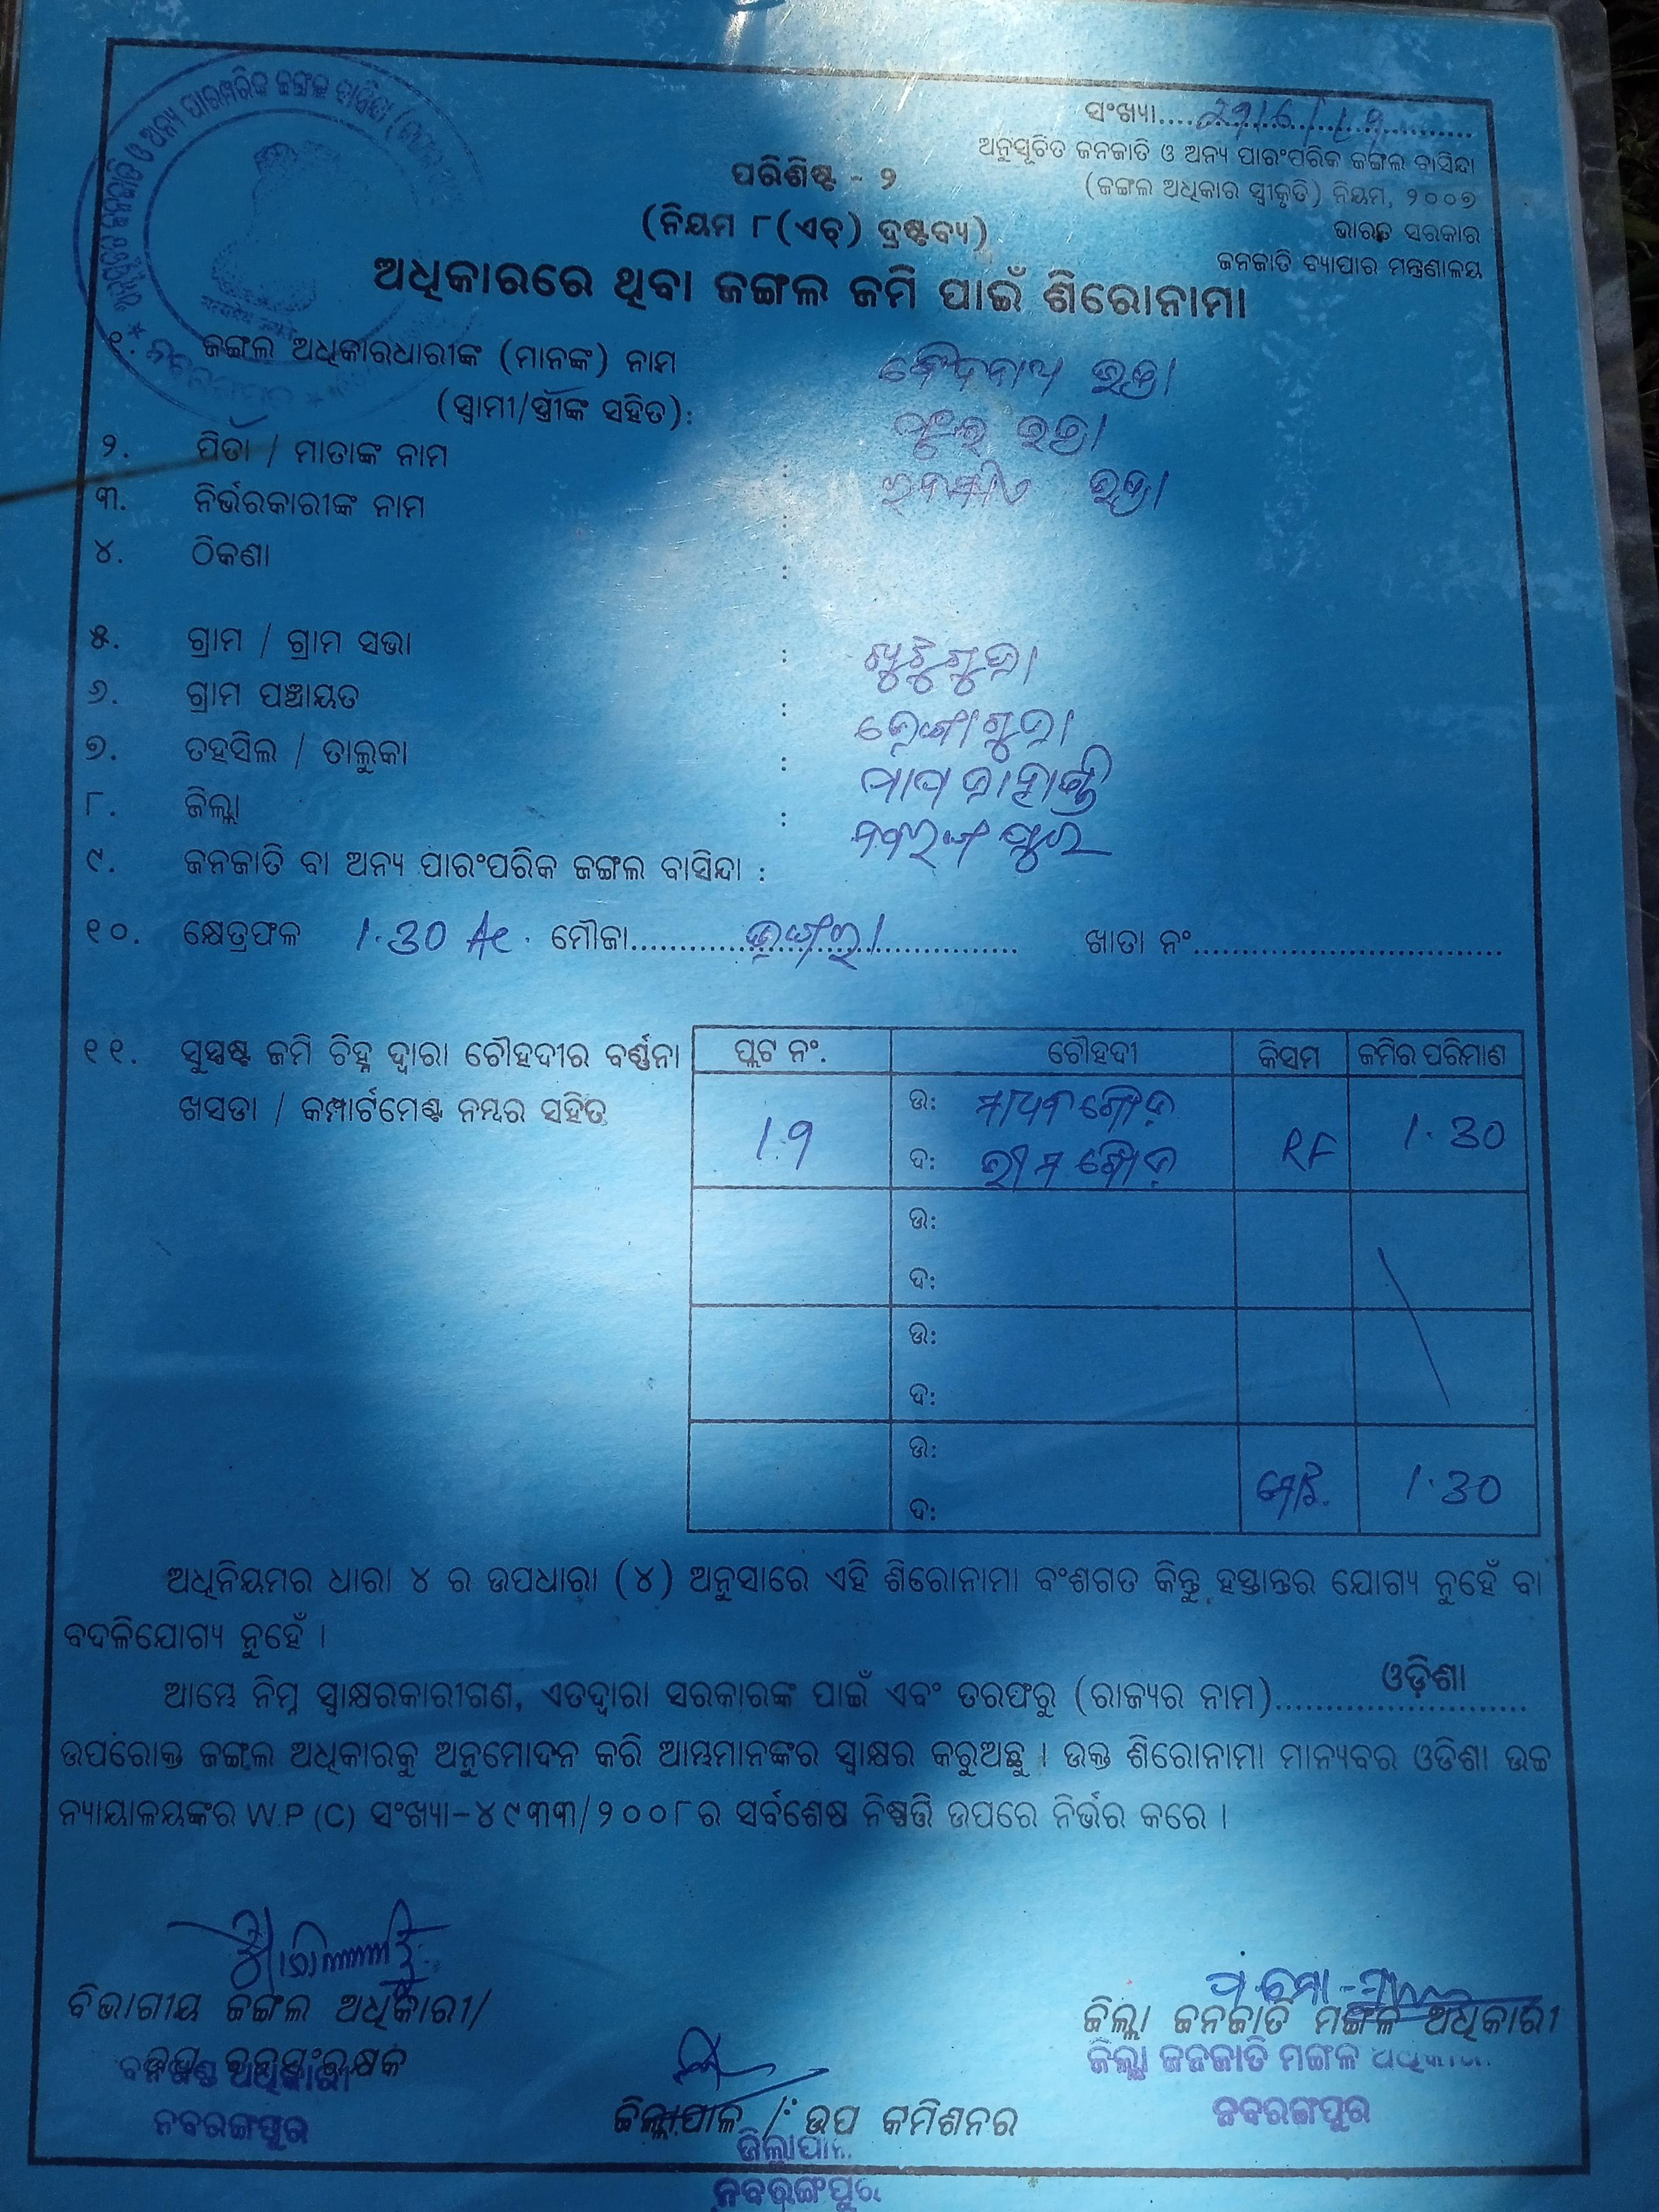 ସଂଖ୍ୟା
ଅନୁସୂଚିତ ଜନଜାତି ଓ ଅନ୍ୟ ପାରଂପରିକ ଜଙ୍ଗଲ ବାସିନ୍ଦା
(ଜଙ୍ଗଲ ଅଧିକାର ସ୍ୱୀକୃତି) ନିୟମ, ୨୦୦୭
ଭାରତ ସରକାର
ଜନଜାତି ବ୍ୟାପାର ମନ୍ତ୍ରଣାଳୟ
ପରିଶିଷ୍ଟ - ୨
(ନିୟମ ୮(ଏଚ୍) ଦ୍ରଷ୍ଟବ୍ୟ)
ଅଧିକାରରେ ଥିବା ଜଙ୍ଗଲ ଜମି ପାଇଁ ଶିରୋନାମା
୧. ଜଙ୍ଗଲ ଅଧିକାରଧାରୀଙ୍କ (ମାନଙ୍କ) ନାମ
(ସ୍ୱାମୀ/ସ୍ତ୍ରୀଙ୍କ ସହିତ):
୨. ପିତା / ମାତାଙ୍କ ନାମ :
୩. ନିର୍ଭରକାରୀଙ୍କ ନାମ :
୪. ଠିକଣା :
୫. ଗ୍ରାମ / ଗ୍ରାମ ସଭା :
୬. ଗ୍ରାମ ପଞ୍ଚାୟତ :
୭. ତହସିଲ / ତାଲୁକା : ପାପଡାହାଣ୍ଡି
୮. ଜିଲ୍ଲା : ନବରଙ୍ଗପୁର
୯. ଜନଜାତି ବା ଅନ୍ୟ ପାରଂପରିକ ଜଙ୍ଗଲ ବାସିନ୍ଦା :
୧୦. କ୍ଷେତ୍ରଫଳ 1.30 Ac. ମୌଜା ଖାତା ନଂ
୧୧. ସୁସ୍ପଷ୍ଟ ଜମି ଚିହ୍ନ ଦ୍ୱାରା ଚୌହଦୀର ବର୍ଣ୍ଣନା
ଖସଡା / କମ୍ପାର୍ଟମେଣ୍ଟ ନମ୍ବର ସହିତ
ପ୍ଲଟ ନଂ. ଚୌହଦୀ କିସମ ଜମିର ପରିମାଣ
ଉ:
ଦ: RF 1.30
ଉ:
ଦ:
ଉ:
ଦ:
ଉ:
ଦ: 1.30
ଅଧିନିୟମର ଧାରା ୪ ର ଉପଧାରା (୪) ଅନୁସାରେ ଏହି ଶିରୋନାମା ବଂଶଗତ କିନ୍ତୁ ହସ୍ତାନ୍ତର ଯୋଗ୍ୟ ନୁହେଁ ବା
ବଦଳିଯୋଗ୍ୟ ନୁହେଁ ।
ଆମ୍ଭେ ନିମ୍ନ ସ୍ୱାକ୍ଷରକାରୀଗଣ, ଏତଦ୍ୱାରା ସରକାରଙ୍କ ପାଇଁ ଏବଂ ତରଫରୁ (ରାଜ୍ୟର ନାମ) ଓଡ଼ିଶା
ଉପରୋକ୍ତ ଜଙ୍ଗଲ ଅଧିକାରକୁ ଅନୁମୋଦନ କରି ଆମ୍ଭମାନଙ୍କର ସ୍ୱାକ୍ଷର କରୁଅଛୁ । ଉକ୍ତ ଶିରୋନାମା ମାନ୍ୟବର ଓଡିଶା ଉଚ୍ଚ
ନ୍ୟାୟାଳୟଙ୍କର W.P (C) ସଂଖ୍ୟା-୪୯୩୩/୨୦୦୮ର ସର୍ବଶେଷ ନିଷ୍ପତ୍ତି ଉପରେ ନିର୍ଭର କରେ ।
ବିଭାଗୀୟ ଜଙ୍ଗଲ ଅଧିକାରୀ/
ଉପ ବନସଂରକ୍ଷକ
ବନଖଣ୍ଡ ଅଧିକାରୀ
ନବରଙ୍ଗପୁର
ଜିଲ୍ଲାପାଳ / ଉପ କମିଶନର
ଜିଲ୍ଲାପାଳ
ନବରଙ୍ଗପୁର
ଜିଲ୍ଲା ଜନଜାତି ମଙ୍ଗଳ ଅଧିକାରୀ
ଜିଲ୍ଲା ଜନଜାତି ମଙ୍ଗଳ ଅଧିକାରୀ
ନବରଙ୍ଗପୁର